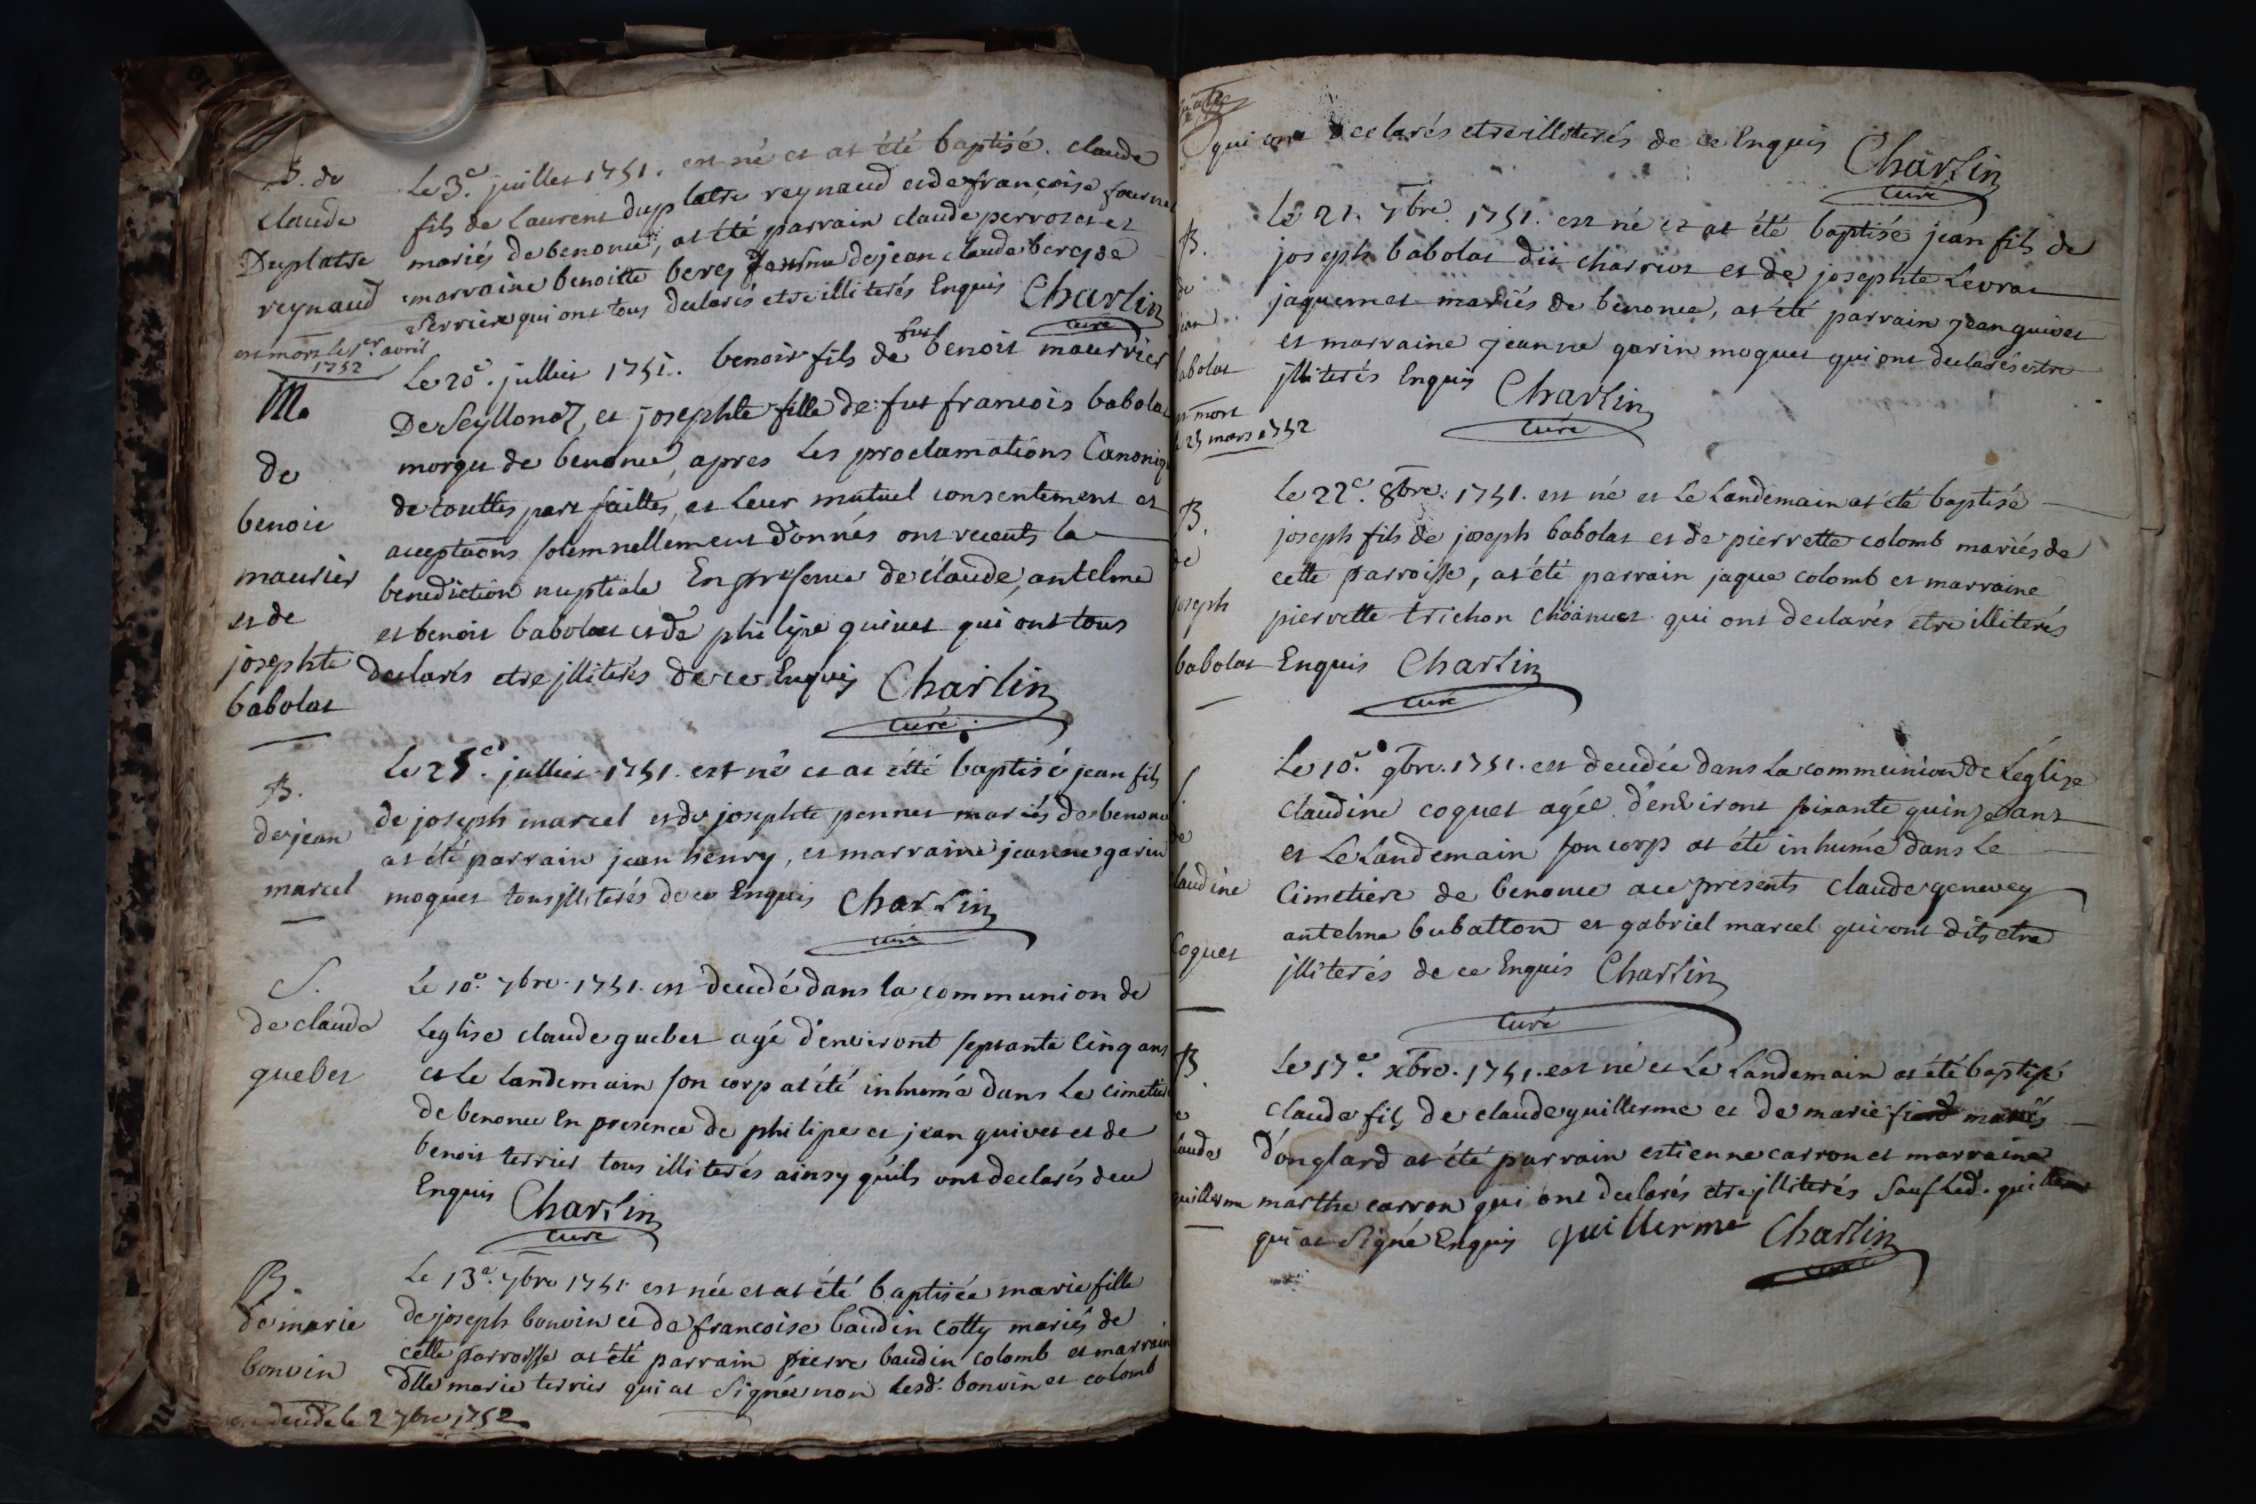 B. de
claude
Duplatre
reynaud
est mort le 1er avril
1752
Le 3e. juillet 1751. est né et at été baptisé. claude
fils de laurent duplatre reynaud et de françoise fournet
mariés de benonce, at été parrain claude perrozet et
marraine benoitte berej femme de jean claude berej de
Serriere qui ont tous declarés etre illiterés Enquis Charlin
curé
M.
de
benoit
maurier
et de
josephte
babolat
Le 20e. jullier 1751. benoit fils de fut benoit maurrier
De Seyllonaz, et josephte fille de fut francois babolat
morgu de benonce, apres Les proclamations Canoniq
de touttes part faittes, et Leur mutuel consentement et
aceptaons solemnellement donnés ont receuts la
benediction nuptiale En presence de claude, antelme
et benoit babolat et de philipe quinet qui ont tous
declarés etre jlliterés de ce Enquis Charlin
curé.
B.
de jean
marcel
Le 25e. jullier 1751. est né et at été baptisé jean fils
de joseph marcel et de josephte pennet mariés de benonce
at été parrain jean henry, et marraine jeanne garin
moquet tous jlliterés de ce Enquis Charlin
curé
S.
de claude
quebet
Le 10e. 7bre. 1751. est decedé dans la communion de
Leglise claude quebet agé d'environt septante Cinq ans
et Le Landemain son corp at été inhumé dans Le cimetier
de benonce En presence de philipe et jean quinet et de
benoit terrier tous illiterés ainsy qu'ils ont declarés de ce
Enquis Charlin
curé
B.
de marie
bonvin
decedé le 2 7bre 1752
Le 13e. 7bre 1751 est née et at été baptisée marie fille
de joseph bonvin et de francoise baudin cotty mariés de
cette parroisse at été parrain pierre baudin colomb et marrain
Dlle marie terrier qui at Signée non lesd. bonvin et colomb
qui ont declarés etre illiterés de ce Enquis Charlin
curé
B.
de
jean
babolat
est mort
le 25 mars 1752
Le 21. 7bre. 1751. est né et at été baptisé jean fils de
joseph babolat dit charriot et de josephte Levrat
jaquemet mariés de benonce, at été parrain jean quinet
et marraine jeanne garin moquet qui ont declarés estre
jlliterés Enquis Charlin
Curé
B.
de
joseph
babolat
Le 22e. 8bre. 1751. est né et Le Landemain at été baptisé
joseph fils de joseph babolat et de pierrette colomb mariés de
cette parroisse, at été parrain jaque colomb et marraine
pierrette trichon choanuet qui ont declarés etre illiterés
Enquis Charlin
curé
S.
de
claudine
Coquet
Le 10e. 9bre. 1751. est decedée dans La communion de Léglise
Claudine coquet agée d'environt soixante quinze ans
et Le Landemain son corp at été inhumé dans Le
Cimetiere de benonce ace presents claude genevey
antelme bubatton et gabriel marcel qui ont dits etre
jlliterés de ce Enquis Charlin
Curé
B.
de
claude
guillerme
Le 17e. xbre. 1751. est né et Le Landemain at été baptisé
claude fils de claude guillerme et de marie mariés
D'onglard at été parrain estienne carron et marraine
marthe carron qui ont declarés etre jlliterés Sauf Led. guillerme
qui at Signé Enquis guillerme Charlin
curé